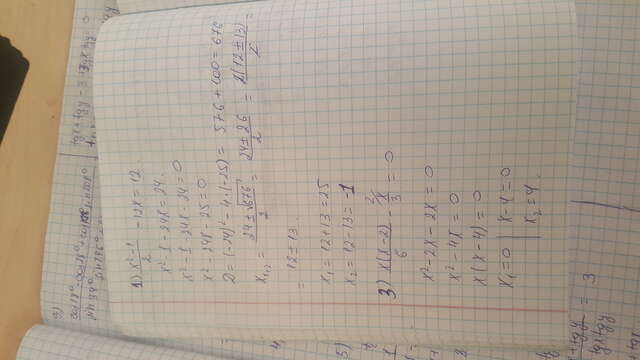 3)
1) x²-1/2 - 12x = 12.
x² - 1 - 24x = 24.
x² - 1 - 24x - 24 = 0
x² - 24x - 25 = 0
D = (-24)² - 4·(-25) = 576 + 100 = 676
x₁,₂ = 24 ± √676/2 = 24 ± 26/2 = 2(12 ± 13)/2 =
= 12 ± 13.
x₁ = 12 + 13 = 25
x₂ = 12 - 13 = -1
3) x(x-2)/6 - x/3 ²⁄ = 0
x² - 2x - 2x = 0
x² - 4x = 0
x(x-4) = 0
x₁ = 0 | x - 4 = 0
x₂ = 4.
5)
= 3
tgx tgy